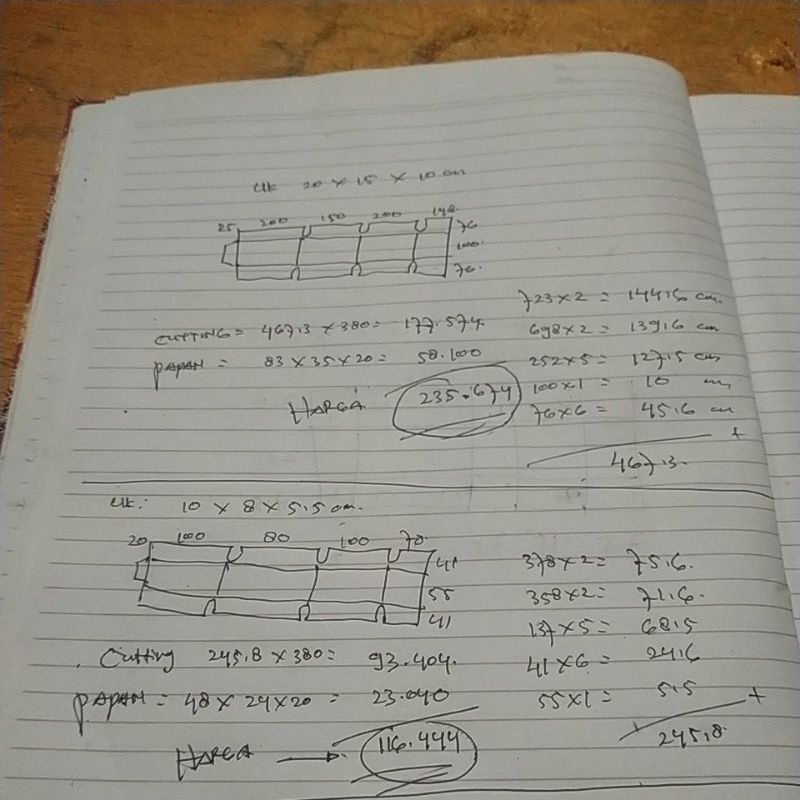 Uk 20 x 15 x 10 cm
25 200 150 200 148
76
100
76
723 x 2 = 144,6 cm
CUTTING = 467,3 x 380 = 177.574
698 x 2 = 139,6 cm
PAPAN = 83 x 35 x 20 = 58.100
252 x 5 = 127,5 cm
HARGA 235.674
100 x 1 = 10 cm
76 x 6 = 45,6 cm
+
467,3
Uk: 10 x 8 x 5.5 cm
20 100 80 100 78
41
55
41
378 x 2 = 75,6
358 x 2 = 71,6
137 x 5 = 68,5
Cutting 245,8 x 380 = 93.404
41 x 6 = 24,6
PAPAN = 48 x 24 x 20 = 23.040
55 x 1 = 5,5
+
HARGA → 116.444
245,8